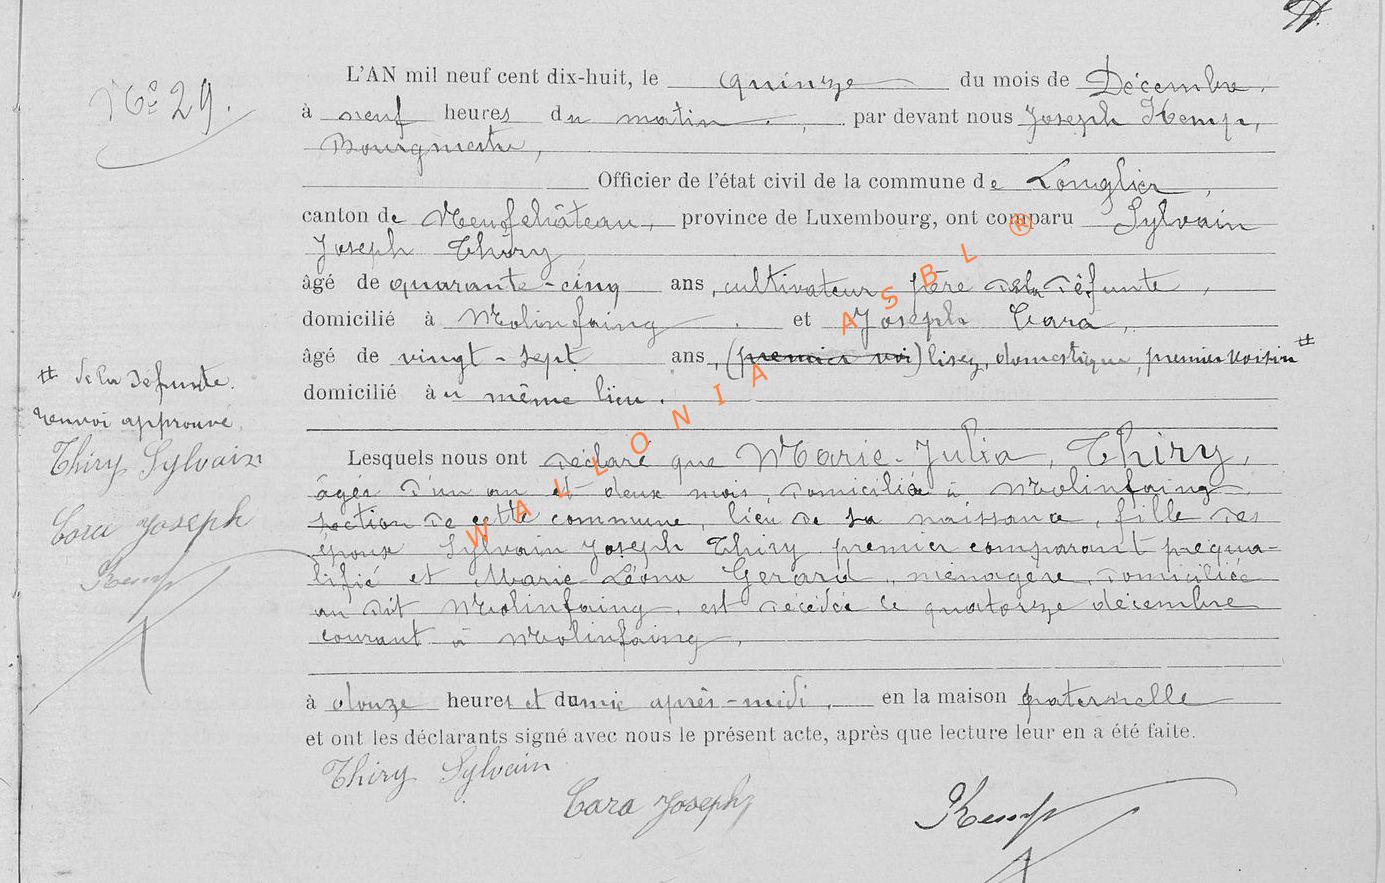 N° 29.
L'AN mil neuf cent dix-huit, le quinze du mois de Décembre,
à neuf heures du matin, par devant nous Joseph Kemp,
Bourgmestre,
Officier de l'état civil de la commune de Longlier,
canton de Neufchâteau, province de Luxembourg, ont comparu Sylvain
Joseph Thiry
âgé de quarante-cinq ans, cultivateur père de la Défunte,
domicilié à Molinfaing et Joseph Cara,
âgé de vingt-sept ans, (premier voi) lisez, domestique, premier voisin #
domicilié au même lieu.
# de la Défunte.
renvoi approuvé
Thiry Sylvain
Cara Joseph
Kemp
Lesquels nous ont déclaré que Marie-Julia, Thiry,
âgée d'un an et deux mois, domiciliée à Molinfaing
section de cette commune, lieu de sa naissance, fille des
époux Sylvain Joseph Thiry premier comparant préqua-
lifié et Marie Léona Gerard, ménagère, domiciliée
au dit Molinfaing, est décédée le quatorze décembre
courant à Molinfaing,
à douze heures et demie après-midi, en la maison paternelle
et ont les déclarants signé avec nous le présent acte, après que lecture leur en a été faite.
Thiry Sylvain
Cara Joseph
Kemp
WALLONIA ASBL ®